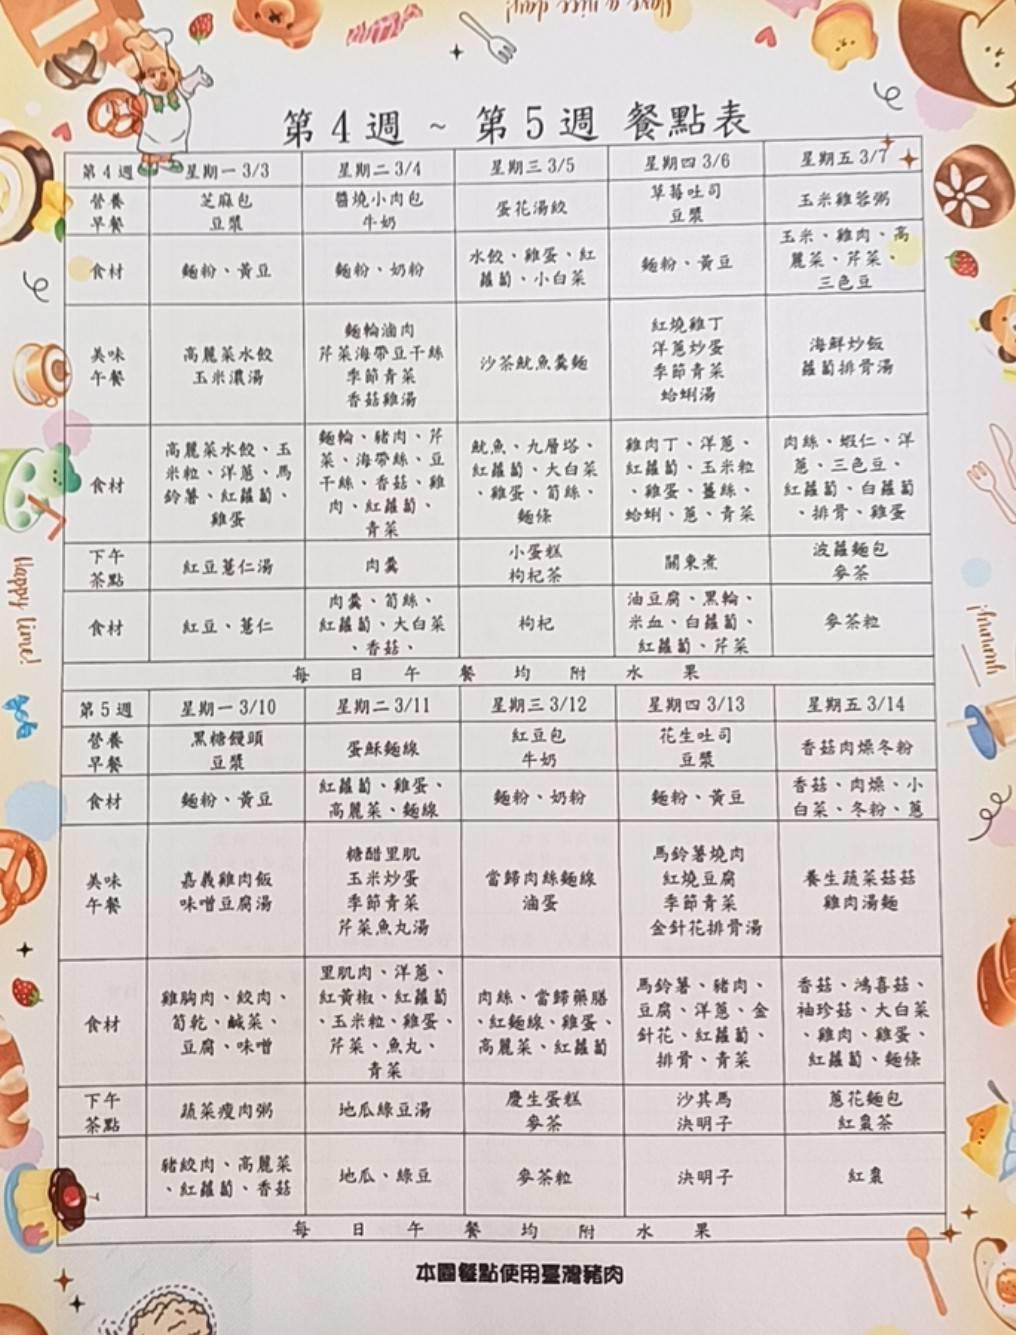 Have a nice day!
第4週 ~ 第5週 餐點表
第4週 星期一 3/3 星期二 3/4 星期三 3/5 星期四 3/6 星期五 3/7
營養
早餐
芝麻包
豆漿
醬燒小肉包
牛奶
蛋花湯餃
草莓吐司
豆漿
玉米雞蓉粥
食材
麵粉、黃豆
麵粉、奶粉
水餃、雞蛋、紅
蘿蔔、小白菜
麵粉、黃豆
玉米、雞肉、高
麗菜、芹菜、
三色豆
美味
午餐
高麗菜水餃
玉米濃湯
麵輪滷肉
芹菜海帶豆干絲
季節青菜
香菇雞湯
沙茶魷魚羹麵
紅燒雞丁
洋蔥炒蛋
季節青菜
蛤蜊湯
海鮮炒飯
蘿蔔排骨湯
食材
高麗菜水餃、玉
米粒、洋蔥、馬
鈴薯、紅蘿蔔、
雞蛋
麵輪、豬肉、芹
菜、海帶絲、豆
干絲、香菇、雞
肉、紅蘿蔔、
青菜
魷魚、九層塔、
紅蘿蔔、大白菜
、雞蛋、筍絲、
麵條
雞肉丁、洋蔥、
紅蘿蔔、玉米粒
、雞蛋、薑絲、
蛤蜊、蔥、青菜
肉絲、蝦仁、洋
蔥、三色豆、
紅蘿蔔、白蘿蔔
、排骨、雞蛋
下午
茶點
紅豆薏仁湯
肉羹
小蛋糕
枸杞茶
關東煮
波蘿麵包
麥茶
食材
紅豆、薏仁
肉羹、筍絲、
紅蘿蔔、大白菜
、香菇、
枸杞
油豆腐、黑輪、
米血、白蘿蔔、
紅蘿蔔、芹菜
麥茶粒
每日午餐均附水果
第5週 星期一 3/10 星期二 3/11 星期三 3/12 星期四 3/13 星期五 3/14
營養
早餐
黑糖饅頭
豆漿
蛋酥麵線
紅豆包
牛奶
花生吐司
豆漿
香菇肉燥冬粉
食材
麵粉、黃豆
紅蘿蔔、雞蛋、
高麗菜、麵線
麵粉、奶粉
麵粉、黃豆
香菇、肉燥、小
白菜、冬粉、蔥
美味
午餐
嘉義雞肉飯
味噌豆腐湯
糖醋里肌
玉米炒蛋
季節青菜
芹菜魚丸湯
當歸肉絲麵線
滷蛋
馬鈴薯燒肉
紅燒豆腐
季節青菜
金針花排骨湯
養生蔬菜菇菇
雞肉湯麵
食材
雞胸肉、絞肉、
筍乾、鹹菜、
豆腐、味噌
里肌肉、洋蔥、
紅黃椒、紅蘿蔔
、玉米粒、雞蛋、
芹菜、魚丸、
青菜
肉絲、當歸藥膳
、紅麵線、雞蛋、
高麗菜、紅蘿蔔
馬鈴薯、豬肉、
豆腐、洋蔥、金
針花、紅蘿蔔、
排骨、青菜
香菇、鴻喜菇、
袖珍菇、大白菜
、雞肉、雞蛋、
紅蘿蔔、麵條
下午
茶點
蔬菜瘦肉粥
地瓜綠豆湯
慶生蛋糕
麥茶
沙其馬
決明子
蔥花麵包
紅棗茶
豬絞肉、高麗菜
、紅蘿蔔、香菇
地瓜、綠豆
麥茶粒
決明子
紅棗
每日午餐均附水果
本園餐點使用臺灣豬肉
Happy time!
yummy!